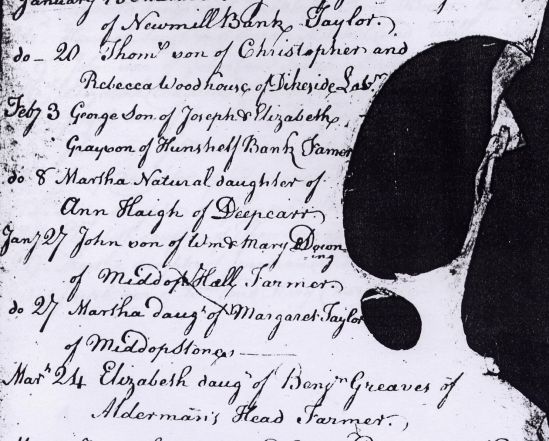 of Newmill Bank Taylor.
do - 20 Thoms son of Christopher and
Rebecca Woodhouse of Dikeside Labr
Feby 3 George Son of Joseph & Elizabeth
Grayson of Hunshelf Bank Famer
do 8 Martha Natural daughter of
Ann Haigh of Deepcarr
Jany 27 John son of Wm & Mary
of Middop Hall Farmer
do 27 Martha daugr of Margaret Taylor
of Middopstones
Marh 24 Elizabeth daugr of Benjn Greaves of
Alderman's Head Farmer.